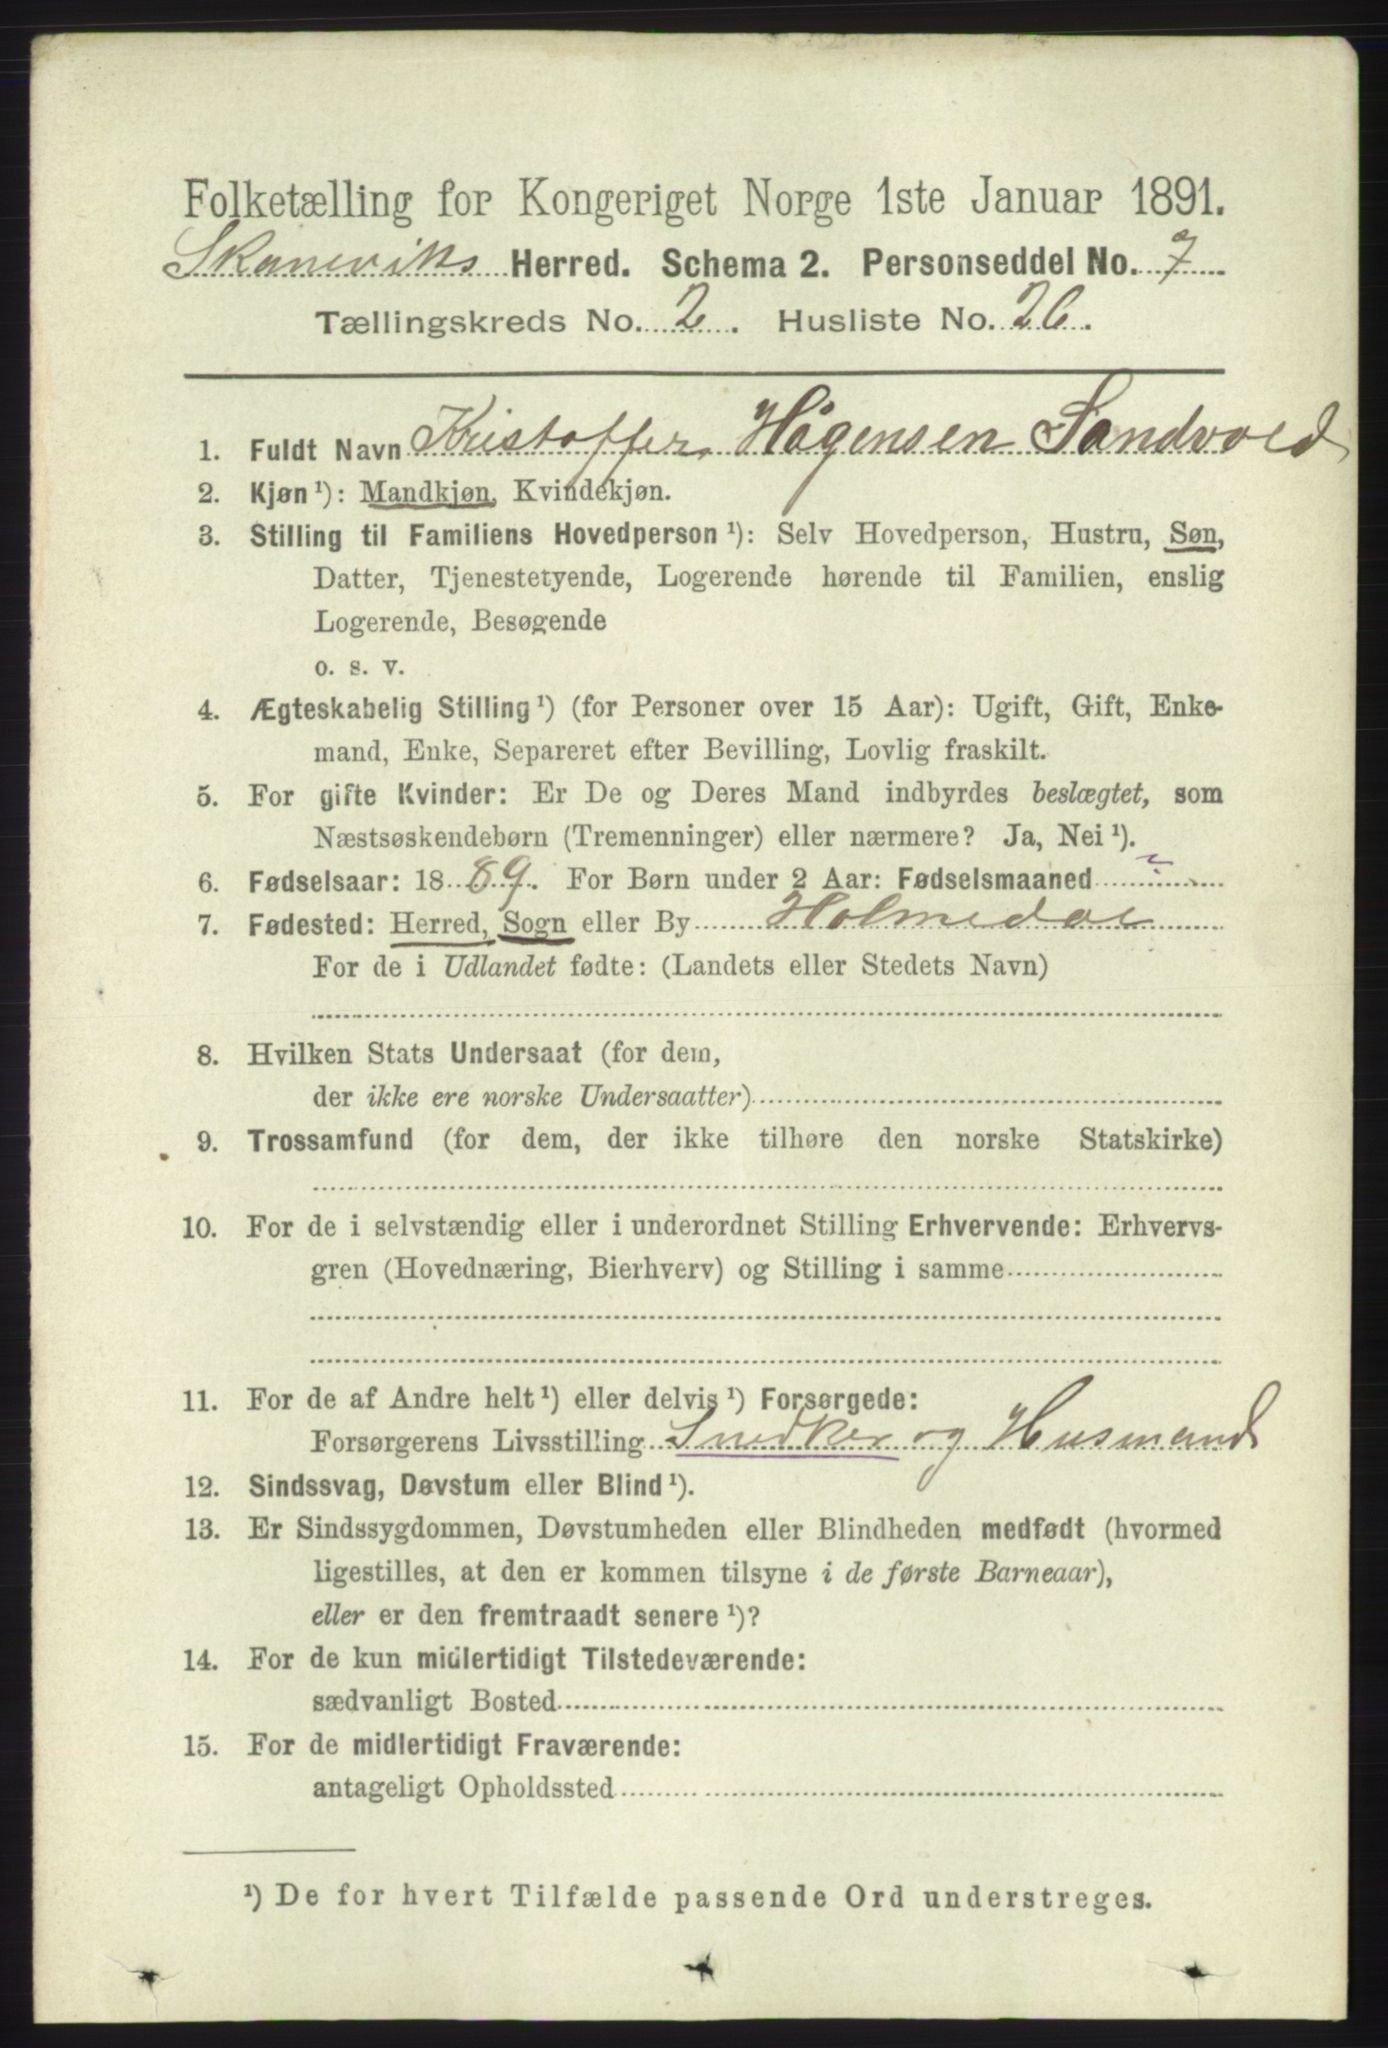 Folketælling for Kongeriget Norge 1ste Januar 1891.
Skaneviks Herred. Schema 2. Personseddel No. 7
Tællingskreds No. 2. Husliste No. 26.
1. Fuldt Navn Kristoffer Hågensen Sandvold
2. Kjøn ¹): Mandkjøn, Kvindekjøn.
3. Stilling til Familiens Hovedperson ¹): Selv Hovedperson, Hustru, Søn,
Datter, Tjenestetyende, Logerende hørende til Familien, enslig
Logerende, Besøgende
o. s. v.
4. Ægteskabelig Stilling ¹) (for Personer over 15 Aar): Ugift, Gift, Enke-
mand, Enke, Separeret efter Bevilling, Lovlig fraskilt.
5. For gifte Kvinder: Er De og Deres Mand indbyrdes beslægtet, som
Næstsøskendebørn (Tremenninger) eller nærmere? Ja, Nei ¹).
6. Fødselsaar: 1889. For Børn under 2 Aar: Fødselsmaaned
7. Fødested: Herred, Sogn eller By Holmedal
For de i Udlandet fødte: (Landets eller Stedets Navn)
8. Hvilken Stats Undersaat (for dem,
der ikke ere norske Undersaatter)
9. Trossamfund (for dem, der ikke tilhøre den norske Statskirke)
10. For de i selvstændig eller i underordnet Stilling Erhvervende: Erhvervs-
gren (Hovednæring, Bierhverv) og Stilling i samme
11. For de af Andre helt ¹) eller delvis ¹) Forsørgede:
Forsørgerens Livsstilling Snedker og Husmand
12. Sindssvag, Døvstum eller Blind ¹).
13. Er Sindssygdommen, Døvstumheden eller Blindheden medfødt (hvormed
ligestilles, at den er kommen tilsyne i de første Barneaar),
eller er den fremtraadt senere ¹)?
14. For de kun midlertidigt Tilstedeværende:
sædvanligt Bosted
15. For de midlertidigt Fraværende:
antageligt Opholdssted
¹) De for hvert Tilfælde passende Ord understreges.